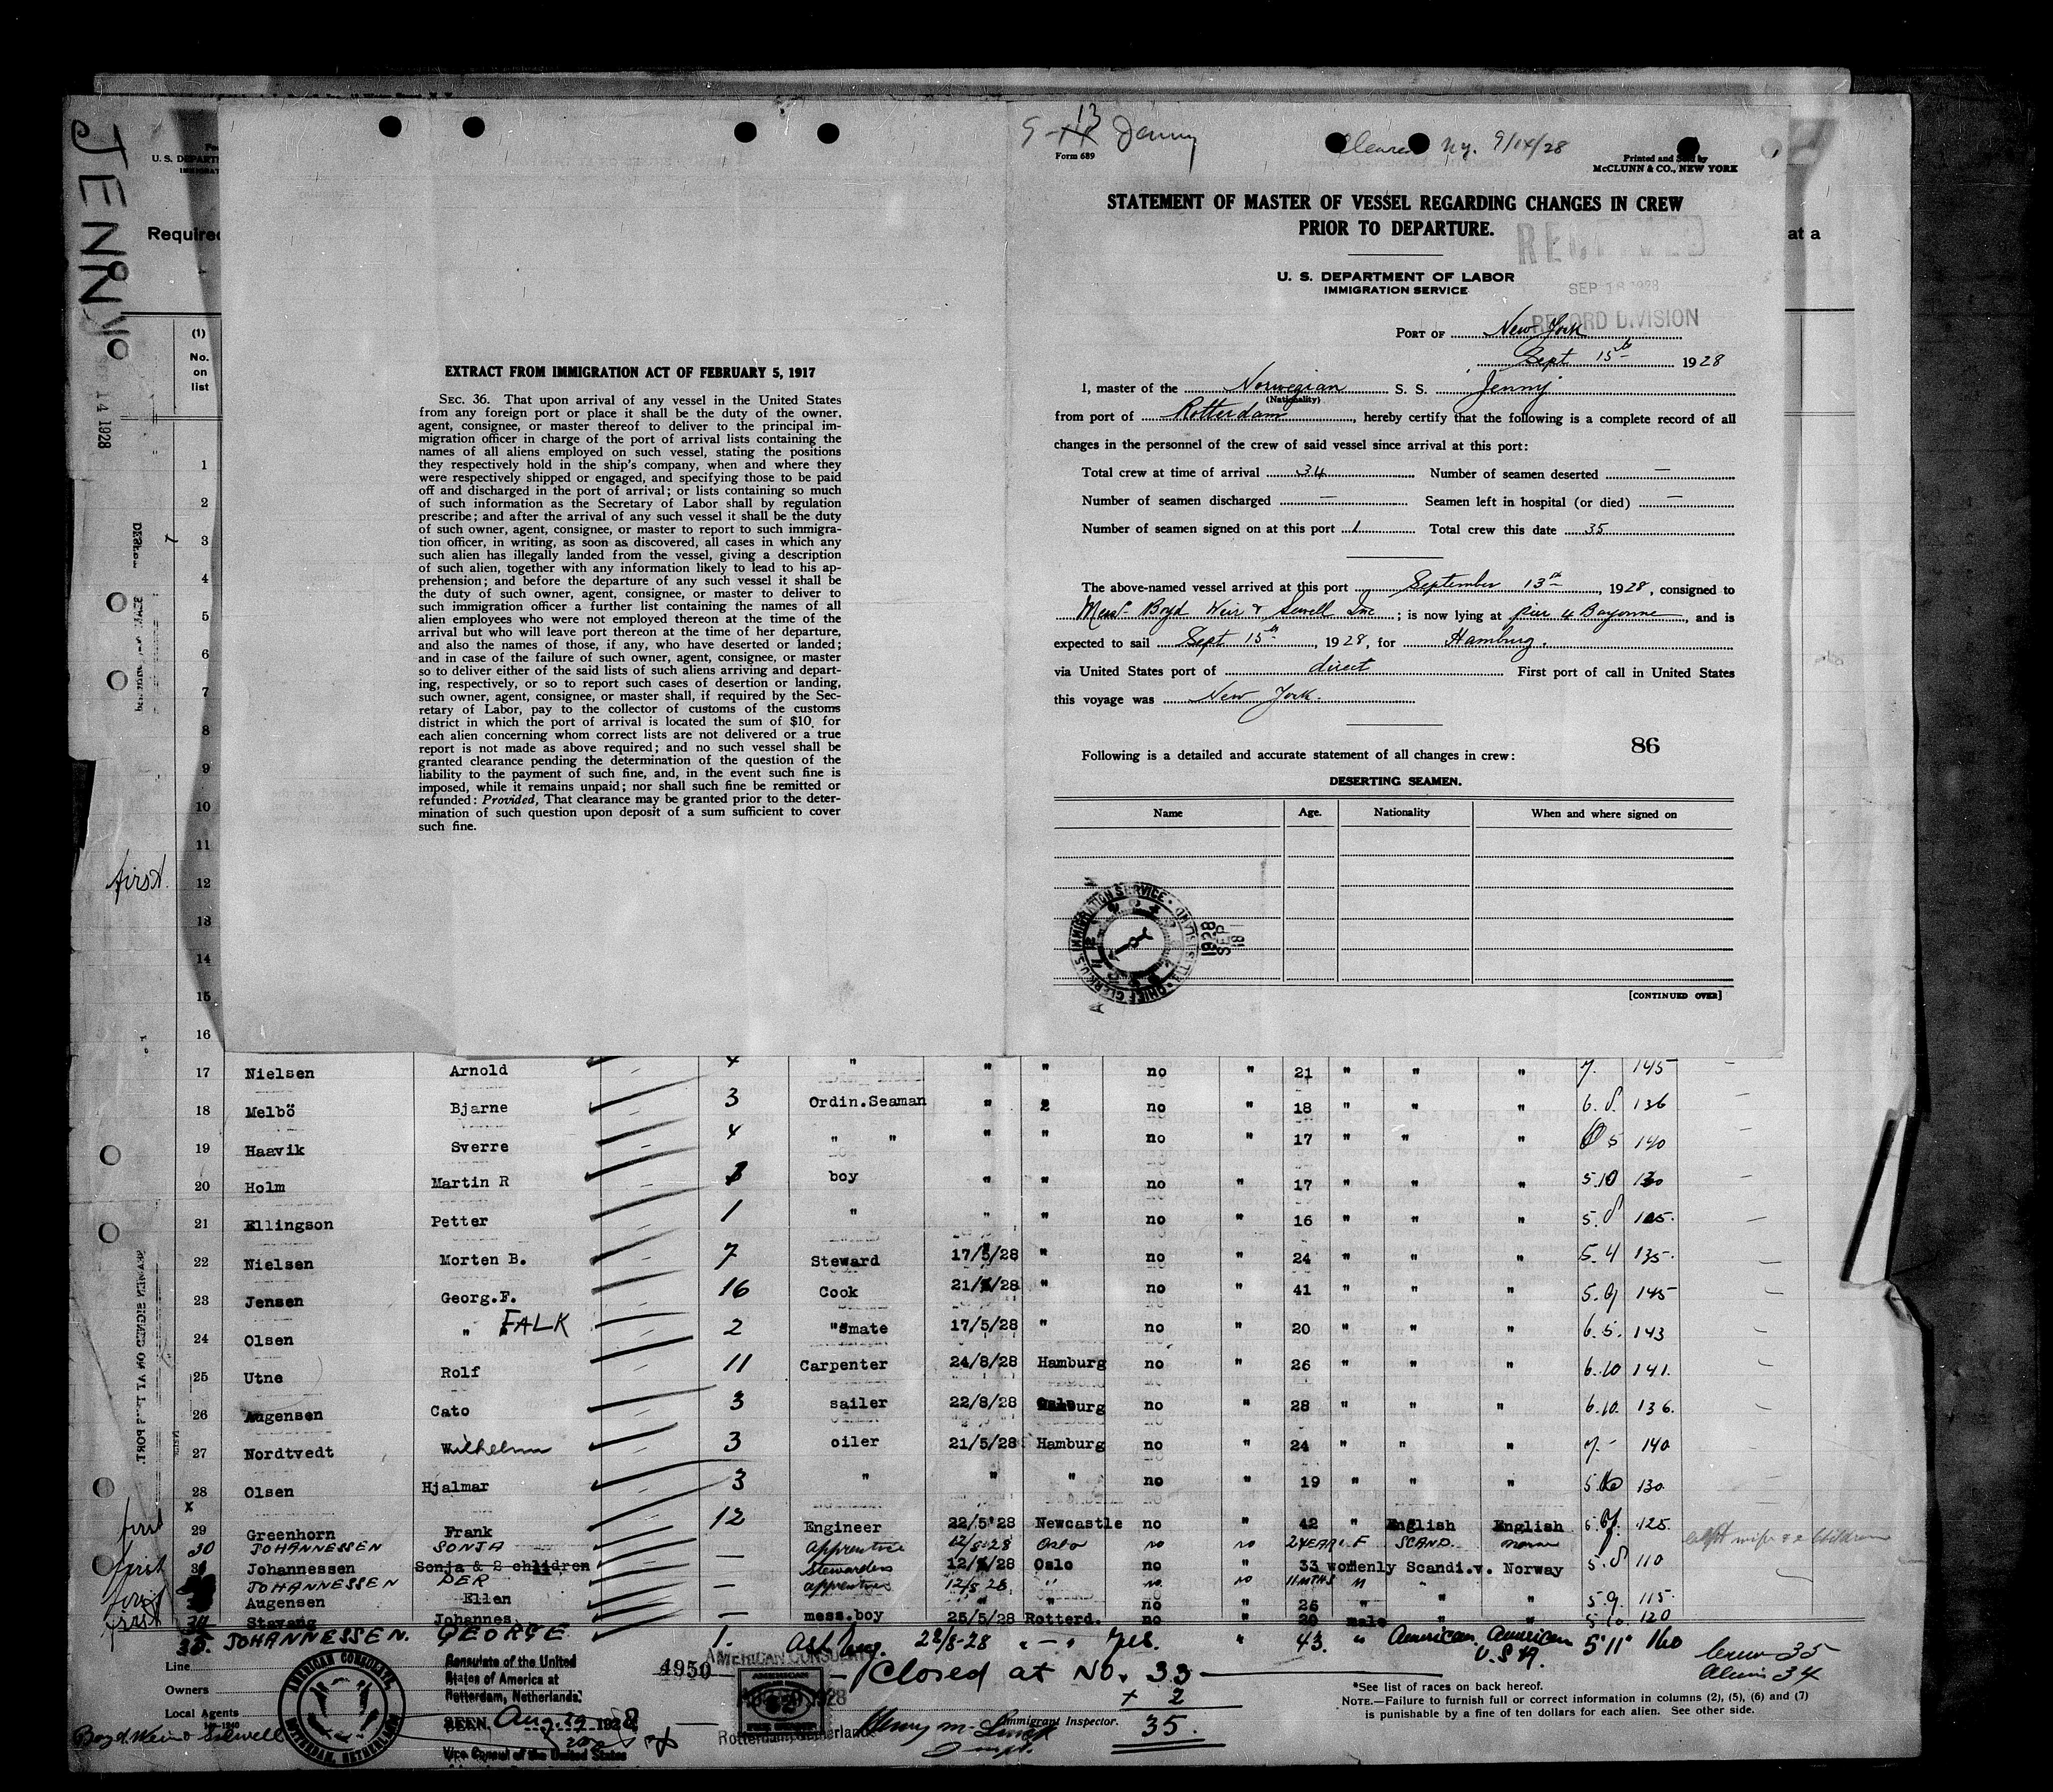 JENNY
SEP 14 1928
Required
at a
(1)
No.
on
list
EXTRACT FROM IMMIGRATION ACT OF FEBRUARY 5, 1917
SEC. 36. That upon arrival of any vessel in the United States
from any foreign port or place it shall be the duty of the owner,
agent, consignee, or master thereof to deliver to the principal im-
migration officer in charge of the port of arrival lists containing the
names of all aliens employed on such vessel, stating the positions
they respectively hold in the ship's company, when and where they
were respectively shipped or engaged, and specifying those to be paid
off and discharged in the port of arrival; or lists containing so much
of such information as the Secretary of Labor shall by regulation
prescribe; and after the arrival of any such vessel it shall be the duty
of such owner, agent, consignee, or master to report to such immigra-
tion officer, in writing, as soon as discovered, all cases in which any
such alien has illegally landed from the vessel, giving a description
of such alien, together with any information likely to lead to his ap-
prehension; and before the departure of any such vessel it shall be
the duty of such owner, agent, consignee, or master to deliver to
such immigration officer a further list containing the names of all
alien employees who were not employed thereon at the time of the
arrival but who will leave port thereon at the time of her departure,
and also the names of those, if any, who have deserted or landed;
and in case of the failure of such owner, agent, consignee, or master
so to deliver either of the said lists of such aliens arriving and depart-
ing, respectively, or so to report such cases of desertion or landing,
such owner, agent, consignee, or master shall, if required by the Sec-
retary of Labor, pay to the collector of customs of the customs
district in which the port of arrival is located the sum of $10 for
each alien concerning whom correct lists are not delivered or a true
report is not made as above required; and no such vessel shall be
granted clearance pending the determination of the question of the
liability to the payment of such fine, and, in the event such fine is
imposed, while it remains unpaid; nor shall such fine be remitted or
refunded: Provided, That clearance may be granted prior to the deter-
mination of such question upon deposit of a sum sufficient to cover
such fine.
9-13 Jenny
Cleared N.Y. 9/14/28
Form 689
Printed and Sold by
McCLUNN & CO., NEW YORK
STATEMENT OF MASTER OF VESSEL REGARDING CHANGES IN CREW
PRIOR TO DEPARTURE.
RECEIVED
SEP 18 1928
RECORD DIVISION
U. S. DEPARTMENT OF LABOR
IMMIGRATION SERVICE
PORT OF New York
Sept 15th 1928
I, master of the Norwegian S. S. Jenny
(Nationality)
from port of Rotterdam, hereby certify that the following is a complete record of all
changes in the personnel of the crew of said vessel since arrival at this port:
Total crew at time of arrival 34 Number of seamen deserted —
Number of seamen discharged — Seamen left in hospital (or died) —
Number of seamen signed on at this port 1 Total crew this date 35
The above-named vessel arrived at this port September 13th, 1928, consigned to
Messrs Boyd Weir & Sewell Inc; is now lying at pier 4 Bayonne, and is
expected to sail Sept 15th, 1928, for Hamburg.
via United States port of direct First port of call in United States
this voyage was New York.
86
Following is a detailed and accurate statement of all changes in crew:
DESERTING SEAMEN.
Name Age. Nationality When and where signed on
CHIEF CLERK U.S. IMMIGRATION SERVICE ELLIS ISLAND
1928 SEP 18
[CONTINUED OVER]
1
2
3
4
5
6
7
8
9
10
11
first. 12
13
14
15
16
17 Nielsen Arnold 4 " " " no " 21 " " " 7. 145
18 Melbö Bjarne 3 Ordin.Seaman " " no " 18 " " " 6.8. 136
19 Haavik Sverre 4 " " " " no " 17 " " " 5 140
20 Holm Martin R boy " " no " 17 " " " 5.10 130
21 Ellingson Petter 1 " " " no " 16 " " " 5.8 105.
22 Nielsen Morten B. 7 Steward 17/5/28 " no " 24 " " " 5.4 135.
23 Jensen Georg.F. 16 Cook 21/ /28 " no " 41 " " " 5.9 145
24 Olsen " FALK 2 "smate 17/5/28 " no " 20 " " " 6.5. 143
25 Utne Rolf 11 Carpenter 24/8/28 Hamburg no " 26 " " " 6.10 141.
26 Augensen Cato 3 sailer 22/8/28 no " 28 " " " 6.10. 136.
27 Nordtvedt Wilhelm 3 oiler 21/5/28 Hamburg no " 24 " " " 7.- 140
28 Olsen Hjalmar 3 " " " no " 19 " " " 5. 130.
x
first 29 Greenhorn Frank 12 Engineer 22/5 28 Newcastle no " 42 " English English 5. 125.
30 JOHANNESSEN SONJA apprentice 12/8-28 Oslo no no 2 YEAR F SCAND. Norw
wife & 2 children
first Johannessen Sonja & 2 children — stewardess 12/ /28 Oslo no " 33 womenly Scandi.v. Norway 5.8 110
JOHANNESSEN PER apprentice 12/8 28. " no. no 11 MTHS M " "
first Augensen Ellen — " " no " 26 " " " 5.9. 115.
first 34 Stavang Johannes — mess.boy 25/5/28 Rotterd. no " 20 male " " 120
35. JOHANNESSEN. GEORGE 1. 22/8-28 " — " Yes. " 43. " American. American U.S.A. 5'11" 160
Crew 35
Aliens 34
Line
Owners
Local Agents
Boyd Weir & Sewell
AMERICAN CONSULATE, ROTTERDAM, NETHERLANDS
Consulate of the United
States of America at
Rotterdam, Netherlands.
SEEN, Aug. 29 1928
Vice Consul of the United States
4950
AMERICAN CONSULATE
AMERICAN
Rotterdam, Netherlands
Closed at No. 33
+ 2
35.
Immigrant Inspector.
*See list of races on back hereof.
NOTE.—Failure to furnish full or correct information in columns (2), (5), (6) and (7)
is punishable by a fine of ten dollars for each alien. See other side.